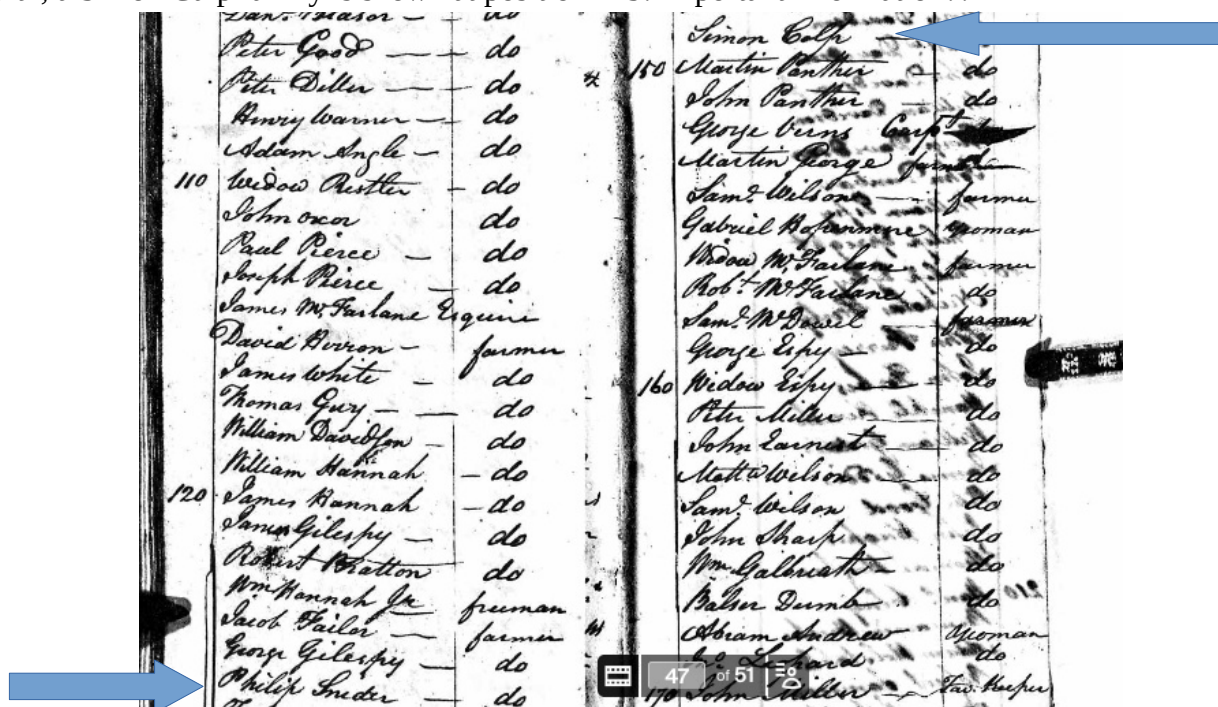 Peter Good — — do
Peter Diller — — do
Henry Warner — do
Adam Angle — do
110 Widow Ristler - do
John oxor do
Paul Pierce — do
Joseph Pierce — do
James McFarlane Esquire
David Herron - farmer
James White - do
Thomas Guy — — do
William Davidson - do
William Hannah - do
120 James Hannah - do
James Gilespy — do
Robert Bratton do
Wm Hannah Jr freeman
Jacob Failor — farmer
George Gilespy — do
Philip Snider — do
Simon Colp —
150 Martin Panther - do
John Panther - do
George Verns Carpt
Martin George farmer
Saml Wilson — farmer
Gabriel yeoman
Widow McFarlane farmer
Robt McFarlane do
Saml McDowel farmer
George Espy — do
160 Widow Espy — do
Peter Miller — do
John Earnest — do
Matt Wilson — do
Saml Wilson do
John Sharp do
Wm Galbreath - do
Balser Dumb do
Abram Andrew yeoman
Lephard do
170 John Miller - Tav. Keeper
210
47 of 51